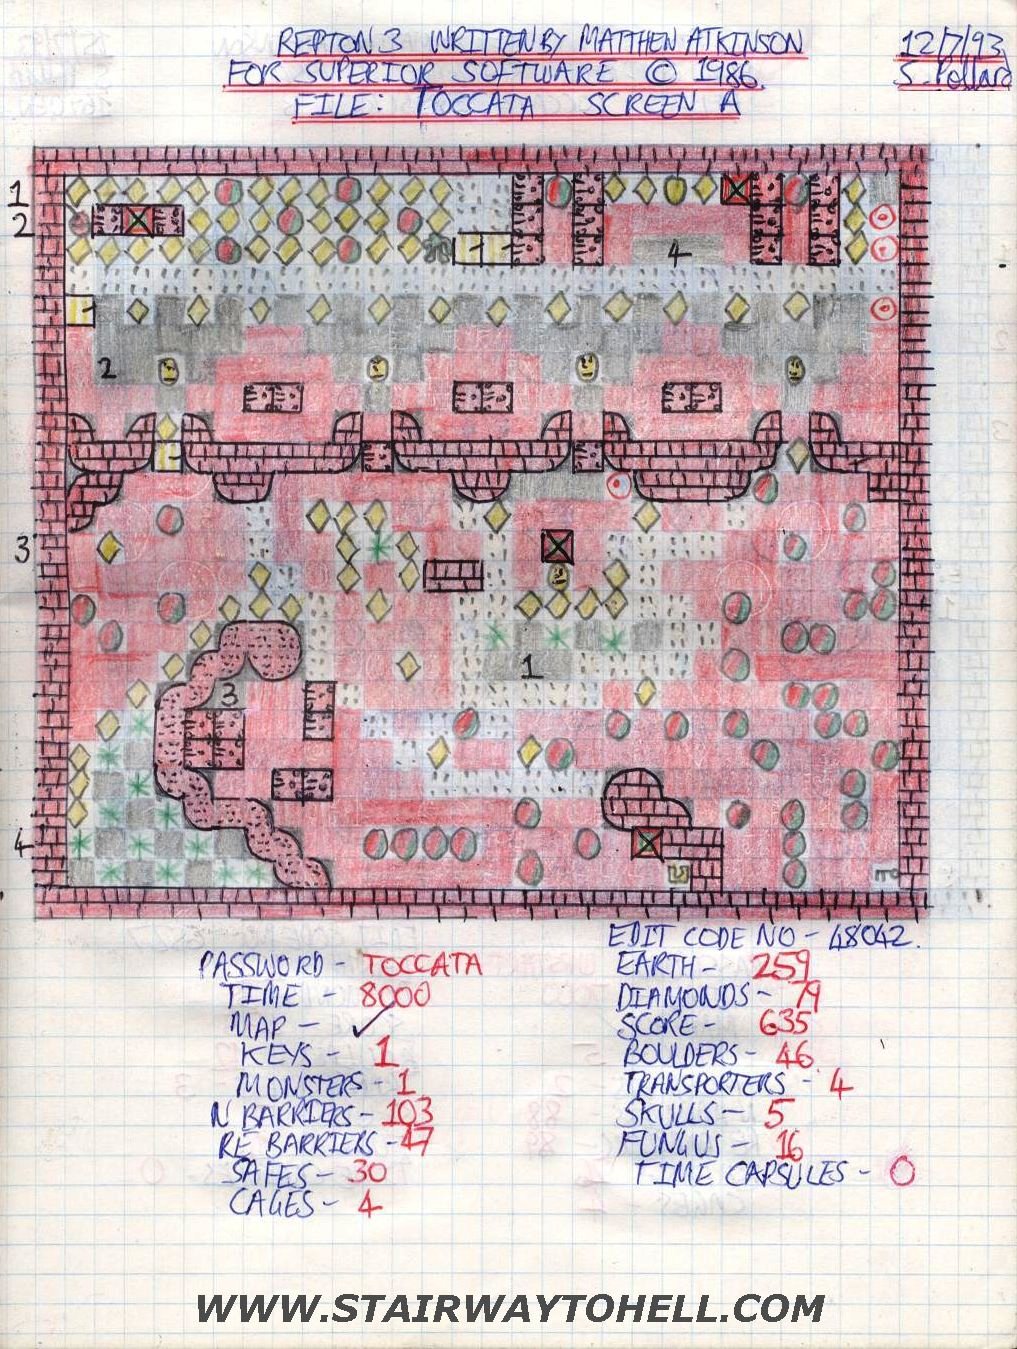 REPTON 3 WRITTEN BY MATTHEW ATKINSON
FOR SUPERIOR SOFTWARE © 1986.
FILE: TOCCATA SCREEN A
12/7/93
S. Pollard
1
2
4
2
3
1
3
4
EDIT CODE NO - 48042.
PASSWORD - TOCCATA
TIME - 8000
MAP - ✓
KEYS - 1
MONSTERS - 1
N BARRIERS - 103
RE BARRIERS - 47
SAFES - 30
CAGES - 4
EARTH - 259
DIAMONDS - 79
SCORE - 635
BOULDERS - 46
TRANSPORTERS - 4
SKULLS - 5
FUNGUS - 16
TIME CAPSULES - 0
WWW.STAIRWAYTOHELL.COM